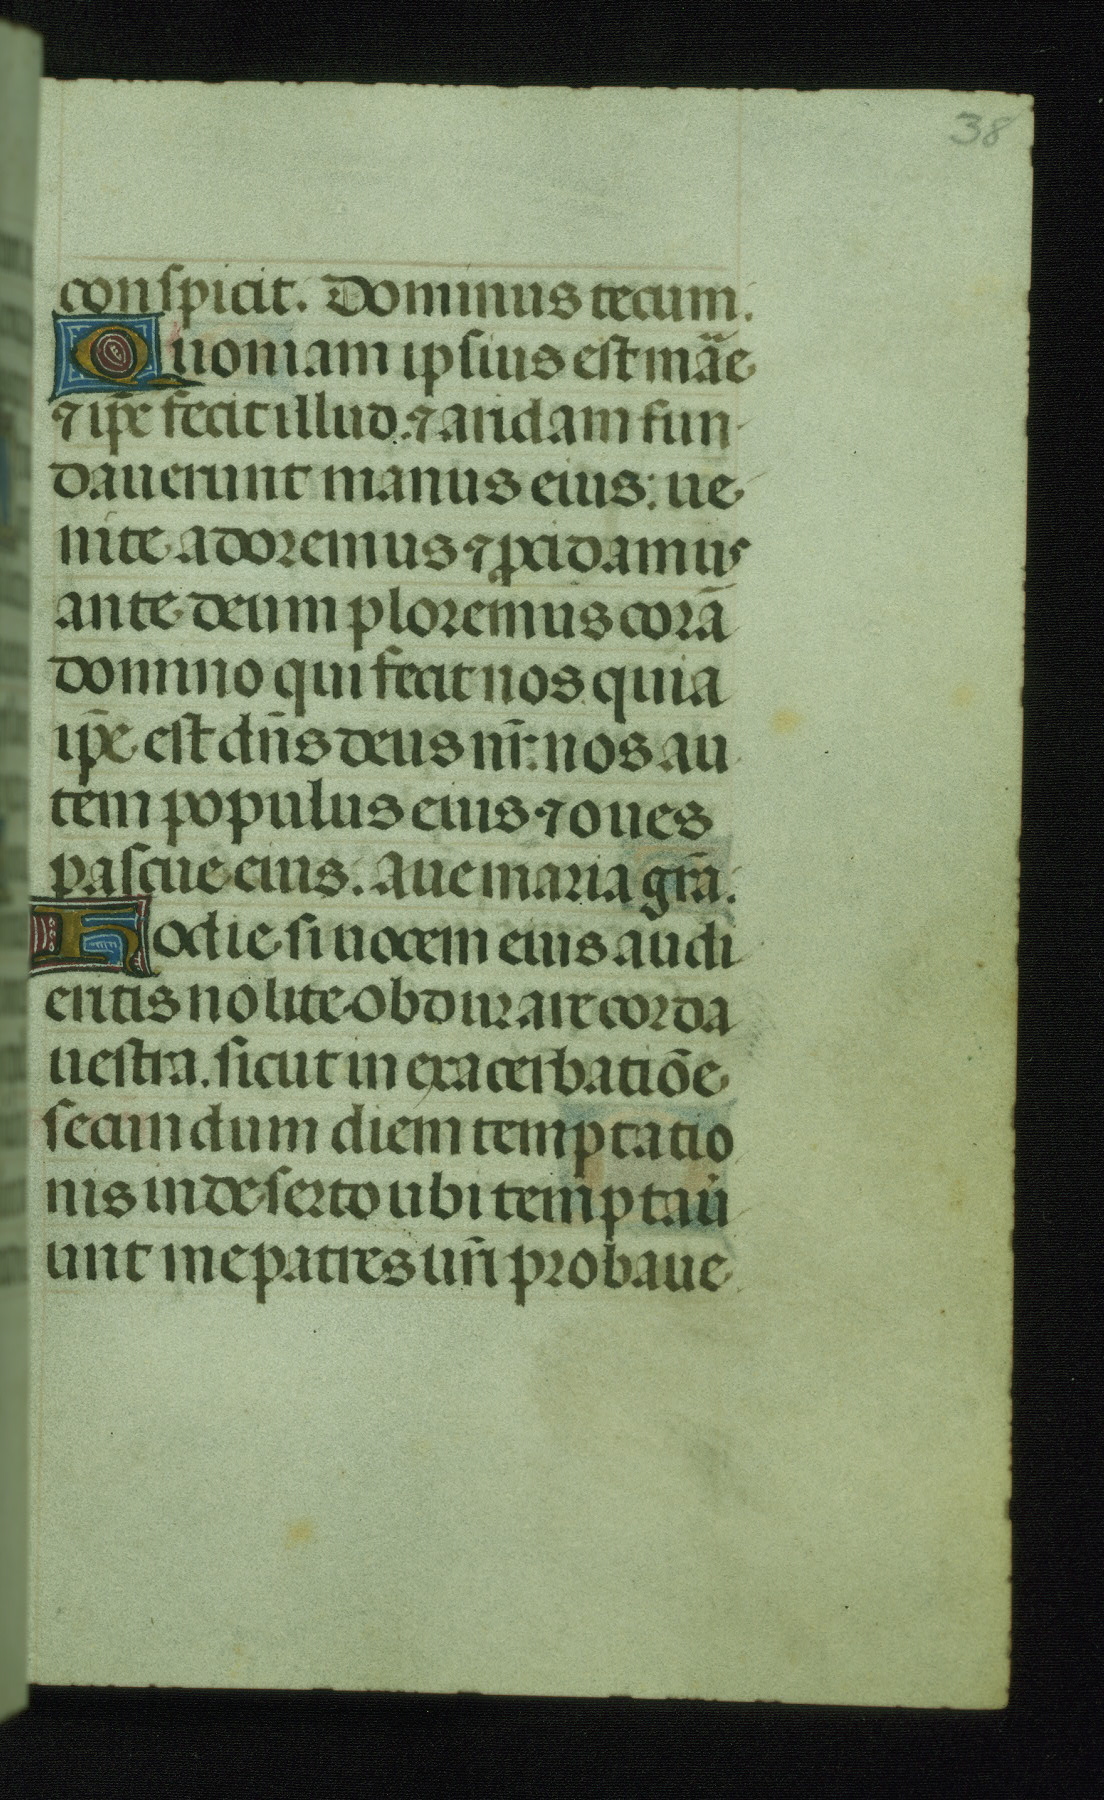 38
conspicit. Dominus tecum.
Quoniam ipsius est mãe
⁊ ip̃e fecit illud. ⁊ aridam fun
dauerunt manus eius: ue
nite adoremus ⁊ ꝓcidamus
ante deum ploremus corã
domino qui fecit nos quia
ip̃e est dñs deus nr̃: nos au
tem populus eius ⁊ oues
pascue eius. Aue maria gr̃a.
Hodie si uocem eius audi
eritis nolite obdurare corda
uestra. sicut in exacerbatiõe
secundum diem temptatio
nis in deserto ubi temptau
unt me patres ur̃i probaue